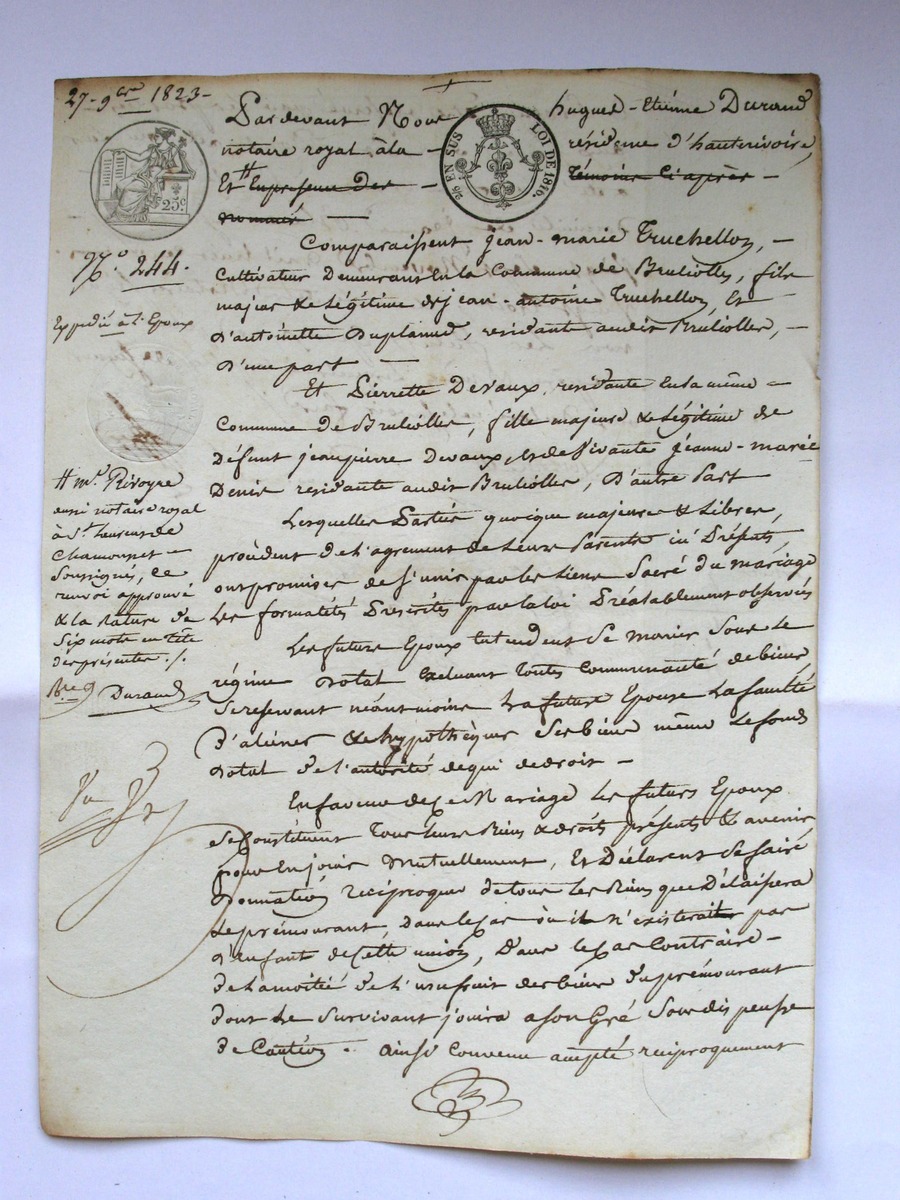 27 - 9bre 1823 -
Pardevant Nous hugues - Etiénne Durand
notaire royal àla - résidence d'hauterivoire,
Et# Enpresence des - témoins ci après -
nommés —
2/6 EN SUS LOI DE 1816.
25c
N.o 244.
Expédié à l'Epoux
Comparaissent jean-marie Truchelloz, -
Cultivateur Demeurant En la Commune de Brulioles, fils
majeur & Légitime de jean-antoine Truchelloz Et
d'antoinette Duplaimd, residants audit Brulioller, -
D'une part —
Et Pierrette Devaux, residante En la même -
Commune de Bruliolles, fille majeure & Légitime de
Défunt jeanpierre Devaux, et de Vivante jeanne-marie
Denis residante audit Bruliolles, D'autre Part
# mr. Rivoyre
aussi notaire royal
à St Laurent de
Chamousset -
Soussignés, Ce
renvoi approuvé
& la rature de
Six mots en tête
des présentes ./.
Durand
Lesquelles Parties quoique majeurs & Libres,
procèdent de l'agrément de Leurs Parents ici Présents,
ont promises de s'unir par les Liens Sacré du mariage
Les formalités Prescrites par la loi Préalablement observées
Les futurs Epoux Entendent Se marier Sous Le
régime Dotal Excluant Toutes Communauté de biens
Se reservant néantmoins La future Epouse La faculté
D'aliéner & hypothèquer Ses biens même Le fond
Dotal de l'autorité de qui de droit -
En faveur de Ce Mariage Les futurs Epoux
Se Constituent Tous Leurs Biens & droits présents & avenir
pour En jouir Mutuellement, Et Déclarent Se faire
Donnation réciproque de tous Les Biens que Délaissera
Le prémourant, Dans le Cas où il n'existerait pas
d'enfant de Cette union, Dans le Cas Contraire -
De La moitié de L'usufruit des biens du prémourant
Dont Le Survivant jouira a Son Gré Sous dispense
de Caution. ainsi Convenu accepté réciproquement